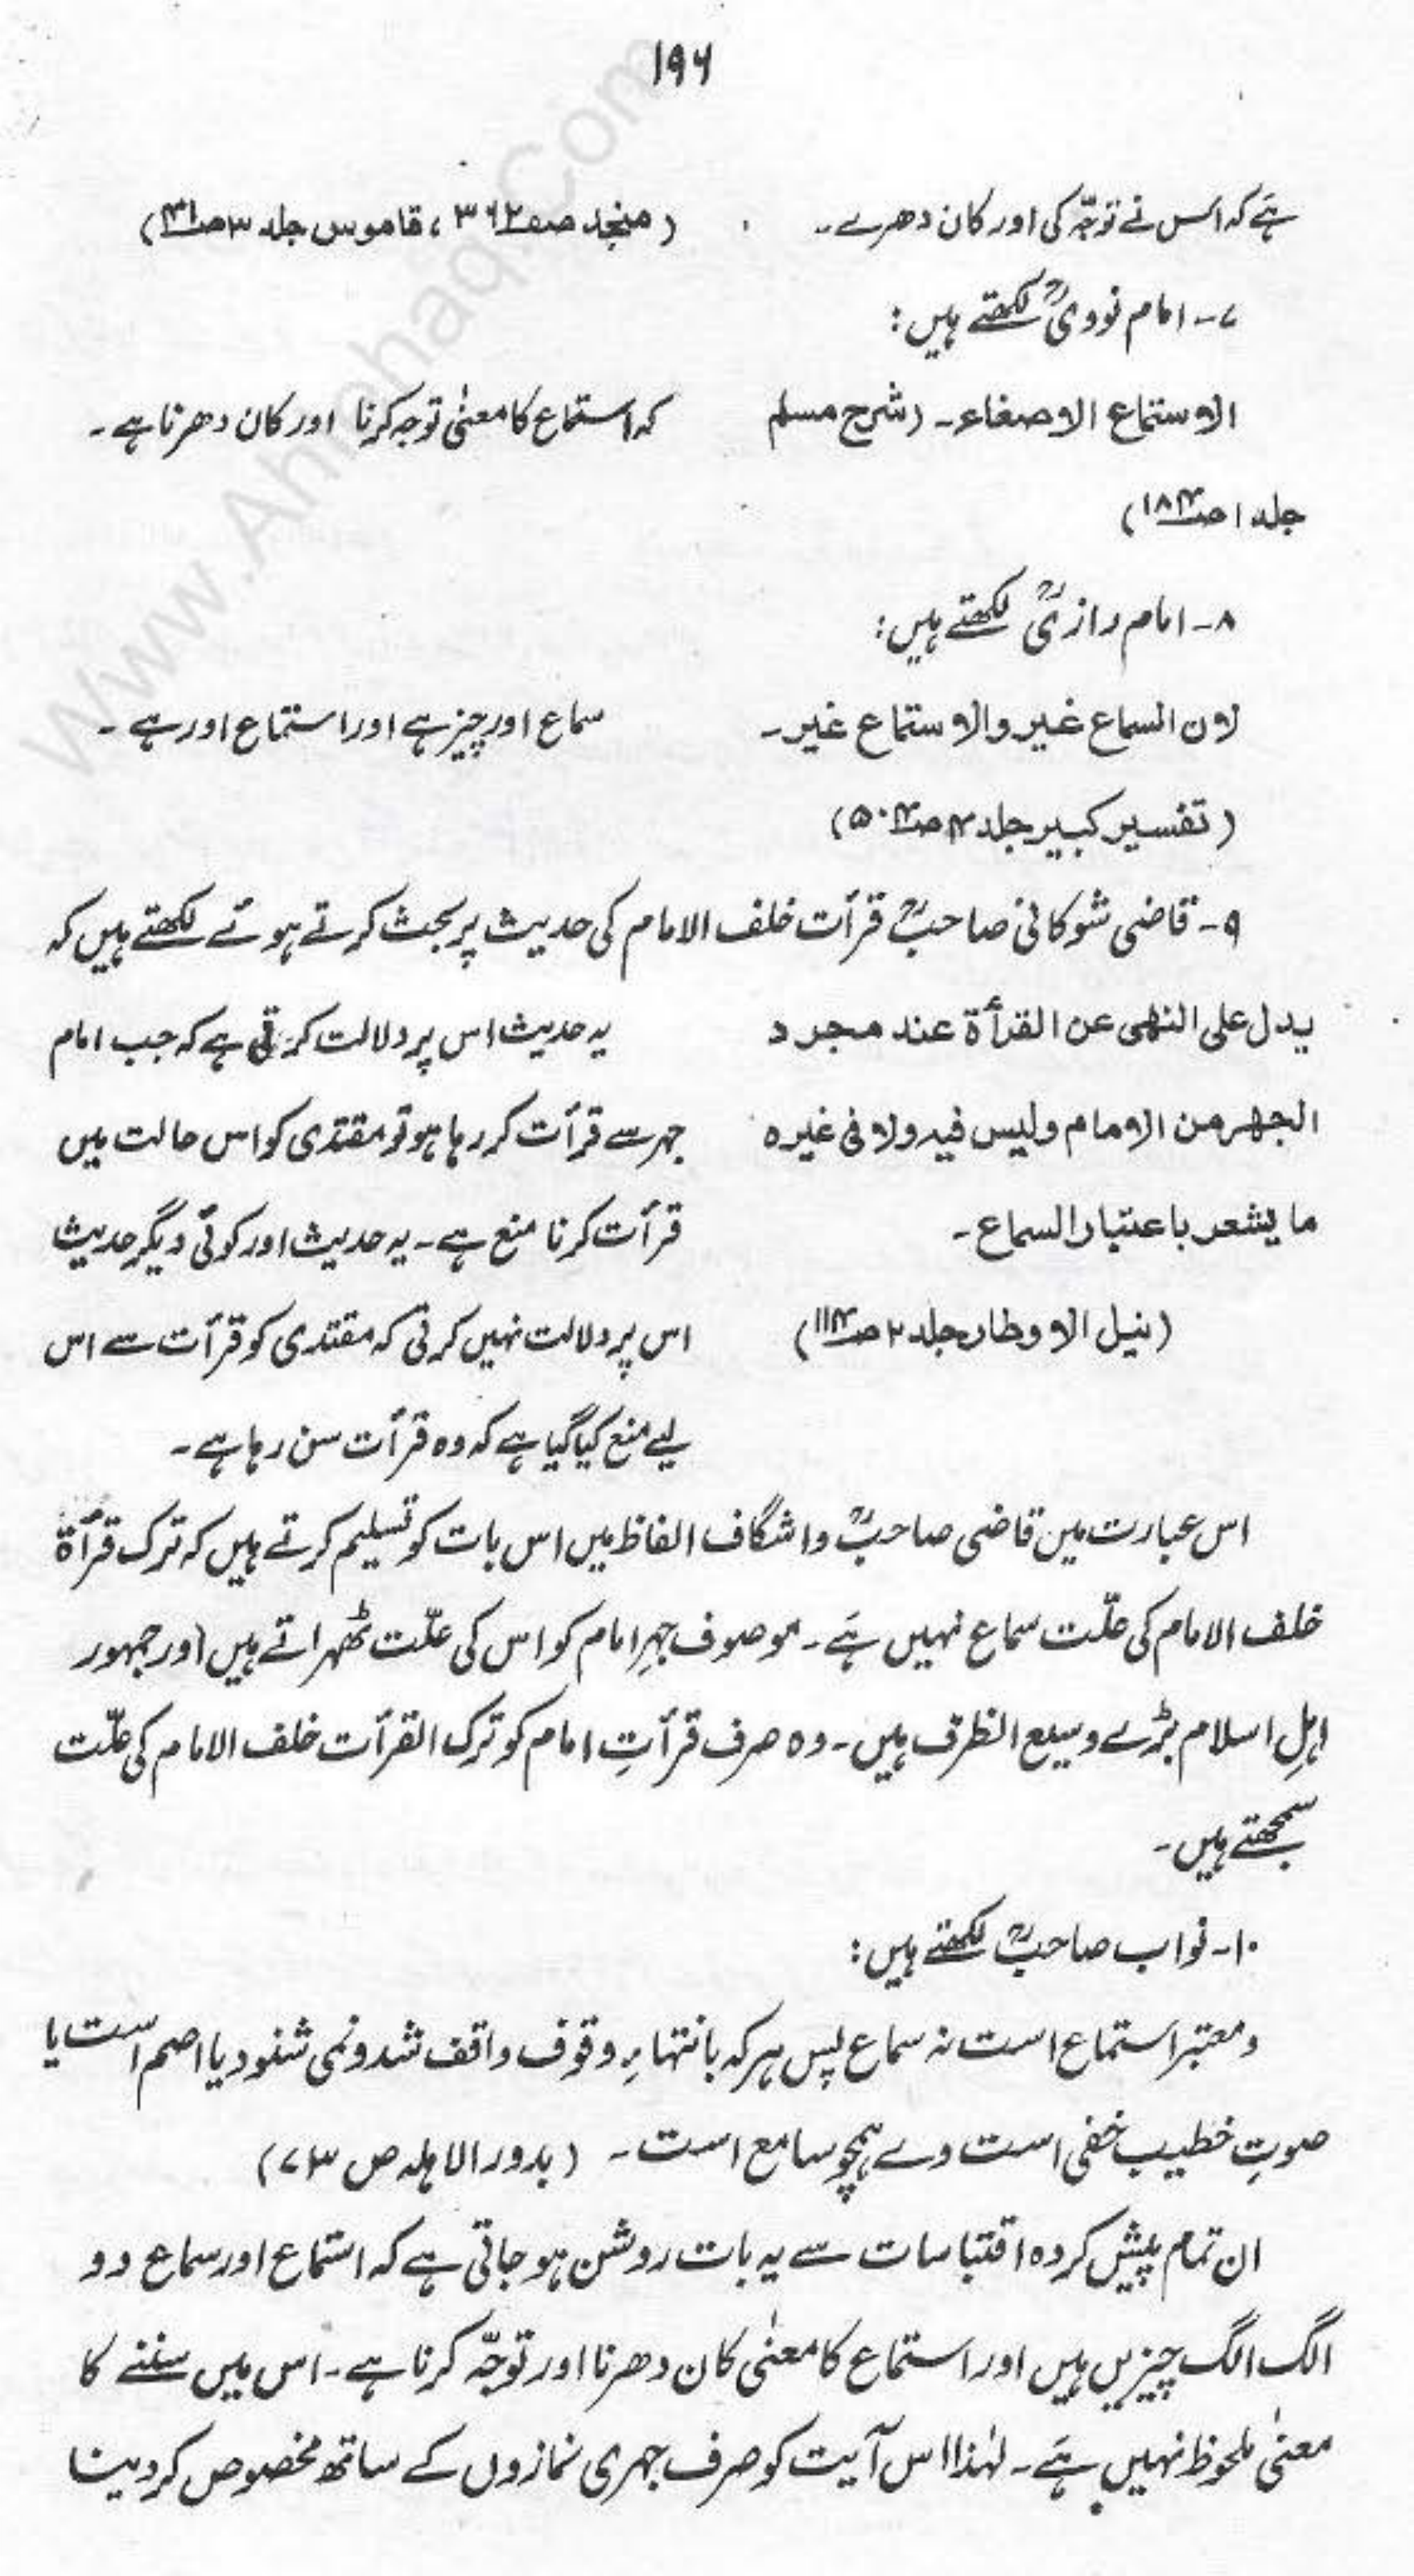 ۱۹۶
ہے کہ اس نے توجّہ کی اور کان دھرے۔ (منجد صفـ۳۶۲، قاموس جلد ۳ صـ۴۱)
۷۔ امام نوویؒ لکھتے ہیں:
الاستماع الاصغاء۔ (شرح مسلم کہ استماع کا معنٰی توجہ کرنا اور کان دھرنا ہے۔
جلد ۱ صـ۱۸۴)
۸۔ امام رازیؒ لکھتے ہیں:
لان السماع غیر والاستماع غیر۔ سماع اور چیز ہے اور استماع اور ہے۔
(تفسیر کبیر جلد ۴ صـ۵۰۴)
۹۔ قاضی شوکانی صاحبؒ قرأت خلف الامام کی حدیث پر بحث کرتے ہوئے لکھتے ہیں کہ
یدل علی النھی عن القرأۃ عند مجرد یہ حدیث اس پر دلالت کرتی ہے کہ جب امام
الجھر من الامام ولیس فیہ ولا فی غیرہ جہر سے قرأت کر رہا ہو تو مقتدی کو اس حالت میں
ما یشعر باعتبار السماع۔ قرأت کرنا منع ہے۔ یہ حدیث اور کوئی دیگر حدیث
(نیل الاوطار جلد ۲ صـ۱۱۴) اس پر دلالت نہیں کرتی کہ مقتدی کو قرأت سے اس
لیے منع کیا گیا ہے کہ وہ قرأت سن رہا ہے۔
اس عبارت میں قاضی صاحبؒ واشگاف الفاظ میں اس بات کو تسلیم کرتے ہیں کہ ترک قرأۃ
خلف الامام کی علّت سماع نہیں ہے۔ موصوف جہرِ امام کو اس کی علّت ٹھہراتے ہیں اور جمہور
اہلِ اسلام بڑے وسیع الظرف ہیں۔ وہ صرف قرأتِ امام کو ترک القرأت خلف الامام کی علّت
سمجھتے ہیں۔
۱۰۔ نواب صاحبؒ لکھتے ہیں:
ومعتبر استماع است نہ سماع پس ہر کہ بانتہاء وقوف واقف شد ونمی شنود یا اصم است یا
صوتِ خطیب خفی است وے ہمچو سامع است۔ (بدور الاہلہ ص ۷۳)
ان تمام پیش کردہ اقتباسات سے یہ بات روشن ہو جاتی ہے کہ استماع اور سماع دو
الگ الگ چیزیں ہیں اور استماع کا معنٰی کان دھرنا اور توجّہ کرنا ہے۔ اس میں سننے کا
معنٰی ملحوظ نہیں ہے۔ لہٰذا اس آیت کو صرف جہری نمازوں کے ساتھ مخصوص کر دینا